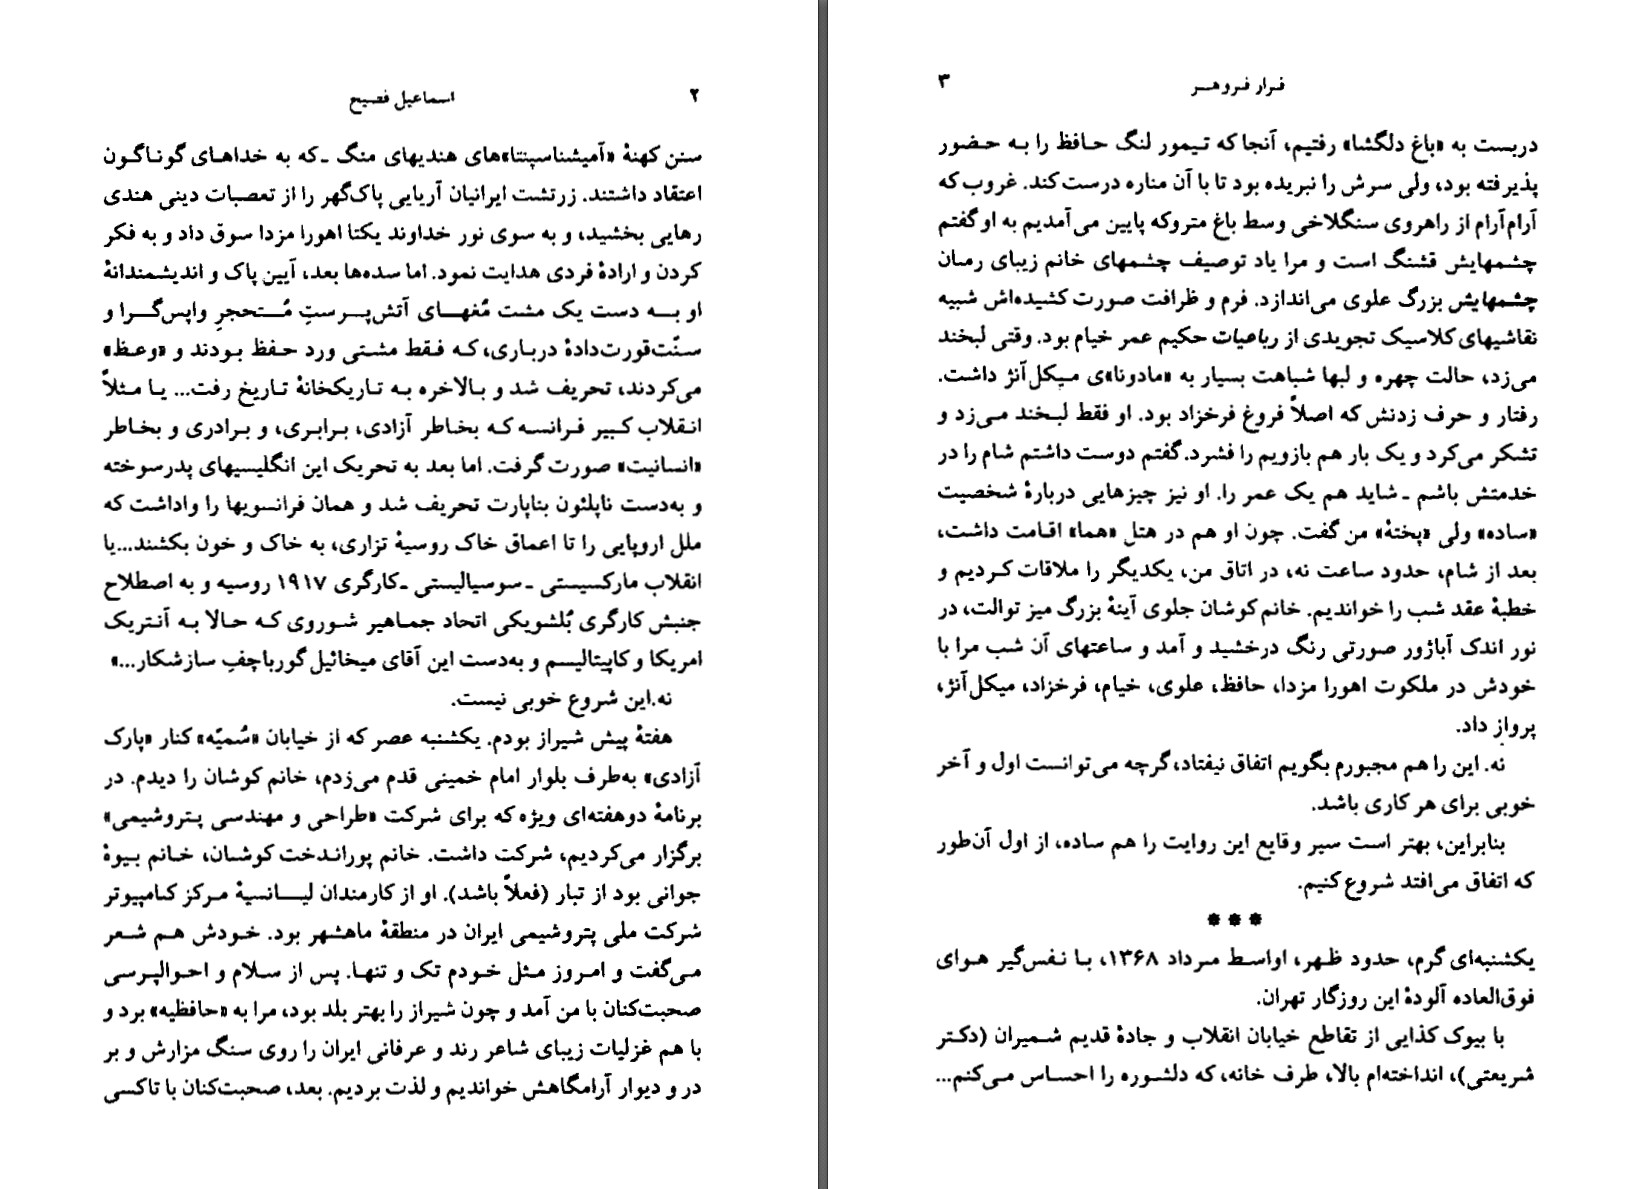 ۲ اسماعیل فصیح
سنن کهنهٔ «آمیشناسپنتا»های هندیهای منگ ـ که به خداهای گوناگون
اعتقاد داشتند. زرتشت ایرانیان آریایی پاک‌گهر را از تعصبات دینی هندی
رهایی بخشید، و به سوی نور خداوند یکتا اهورا مزدا سوق داد و به فکر
کردن و ارادهٔ فردی هدایت نمود. اما سده‌ها بعد، آیین پاک و اندیشمندانهٔ
او بـه دست یک مشت مُغهای آتش‌پرستِ مُتحجرِ واپس‌گرا و
سنّت‌قورت‌دادهٔ درباری، که فقط مشتی ورد حفظ بودند و «وعظ»
می‌کردند، تحریف شد و بالاخره به تاریکخانهٔ تاریخ رفت... یا مثلاً
انقلاب کبیر فرانسه که بخاطر آزادی، برابری، و برادری و بخاطر
«انسانیت» صورت گرفت. اما بعد به تحریک این انگلیسیهای پدرسوخته
و به‌دست ناپلئون بناپارت تحریف شد و همان فرانسویها را واداشت که
ملل اروپایی را تا اعماق خاک روسیهٔ تزاری، به خاک و خون بکشند...یا
انقلاب مارکسیستی ـ سوسیالیستی ـ کارگری ۱۹۱۷ روسیه و به اصطلاح
جنبش کارگری بُلشویکی اتحاد جماهیر شوروی که حالا به آنتریک
امریکا و کاپیتالیسم و به‌دست این آقای میخائیل گورباچفِ سازشکار...»
نه.این شروع خوبی نیست.
هفتهٔ پیش شیراز بودم. یکشنبه عصر که از خیابان «سُمیّه» کنار «پارک
آزادی» به‌طرف بلوار امام خمینی قدم می‌زدم، خانم کوشان را دیدم. در
برنامهٔ دوهفته‌ای ویژه که برای شرکت «طراحی و مهندسی پتروشیمی»
برگزار می‌کردیم، شرکت داشت. خانم پوراندخت کوشان، خانم بیوهٔ
جوانی بود از تبار (فعلاً باشد). او از کارمندان لیسانسیهٔ مرکز کامپیوتر
شرکت ملی پتروشیمی ایران در منطقهٔ ماهشهر بود. خودش هم شعر
می‌گفت و امروز مثل خودم تک و تنها. پس از سلام و احوالپرسی
صحبت‌کنان با من آمد و چون شیراز را بهتر بلد بود، مرا به «حافظیه» برد و
با هم غزلیات زیبای شاعر رند و عرفانی ایران را روی سنگ مزارش و بر
در و دیوار آرامگاهش خواندیم و لذت بردیم. بعد، صحبت‌کنان با تاکسی
فرار فروهر ۳
دربست به «باغ دلگشا» رفتیم، آنجا که تیمور لنگ حافظ را به حضور
پذیرفته بود، ولی سرش را نبریده بود تا با آن مناره درست کند. غروب که
آرام‌آرام از راهروی سنگلاخی وسط باغ متروکه پایین می‌آمدیم به او گفتم
چشمهایش قشنگ است و مرا یاد توصیف چشمهای خانم زیبای رمان
چشمهایش بزرگ علوی می‌اندازد. فرم و ظرافت صورت کشیده‌اش شبیه
نقاشیهای کلاسیک تجویدی از رباعیات حکیم عمر خیام بود. وقتی لبخند
می‌زد، حالت چهره و لبها شباهت بسیار به «مادونا»ی میکل‌آنژ داشت.
رفتار و حرف زدنش که اصلاً فروغ فرخزاد بود. او فقط لبخند می‌زد و
تشکر می‌کرد و یک بار هم بازویم را فشرد. گفتم دوست داشتم شام را در
خدمتش باشم ـ شاید هم یک عمر را. او نیز چیزهایی دربارهٔ شخصیت
«ساده» ولی «پختهٔ» من گفت. چون او هم در هتل «هما» اقامت داشت،
بعد از شام، حدود ساعت نه، در اتاق من، یکدیگر را ملاقات کردیم و
خطبهٔ عقد شب را خواندیم. خانم کوشان جلوی آینهٔ بزرگ میز توالت، در
نور اندک آباژور صورتی رنگ درخشید و آمد و ساعتهای آن شب مرا با
خودش در ملکوت اهورا مزدا، حافظ، علوی، خیام، فرخزاد، میکل‌آنژ،
پرواز داد.
نه. این را هم مجبورم بگویم اتفاق نیفتاد، گرچه می‌توانست اول و آخر
خوبی برای هر کاری باشد.
بنابراین، بهتر است سیر وقایع این روایت را هم ساده، از اول آن‌طور
که اتفاق می‌افتد شروع کنیم.
***
یکشنبه‌ای گرم، حدود ظهر، اواسط مرداد ۱۳۶۸، با نفس‌گیر هوای
فوق‌العاده آلودهٔ این روزگار تهران.
با بیوک کذایی از تقاطع خیابان انقلاب و جادهٔ قدیم شمیران (دکتر
شریعتی)، انداخته‌ام بالا، طرف خانه، که دلشوره را احساس می‌کنم...